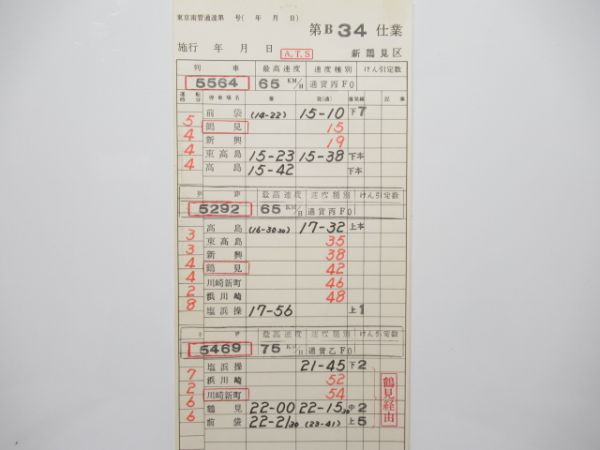 東京南管通達第 号( 年 月 日)
第B 34 仕業
施行 年 月 日 A.T.S 新鶴見区
列車 最高速度 速度種別 けん引定数
5564 65 KM/H 通貨丙F0
運転時分 停車場名 着 発(通) 着発線 記事
前袋 (14-22) 15-10 下7
5 鶴見 15
4 新興 19
4 東高島 15-23 15-38 下本
4 高島 15-42 下本
列車 最高速度 速度種別 けん引定数
5292 65 KM/H 通貨丙F0
高島 (16-30 30) 17-32 上本
3 東高島 35
3 新興 38
4 鶴見 42
4 川崎新町 46
2 浜川崎 48
8 塩浜操 17-56 上1
列車 最高速度 速度種別 けん引定数
5469 75 KM/H 通貨乙F0
塩浜操 21-45 下2
7 浜川崎 52
2 川崎新町 54
6 鶴見 22-00 22-15 30 中2
6 前袋 22-21 30 (23-41) 上5
鶴見経由